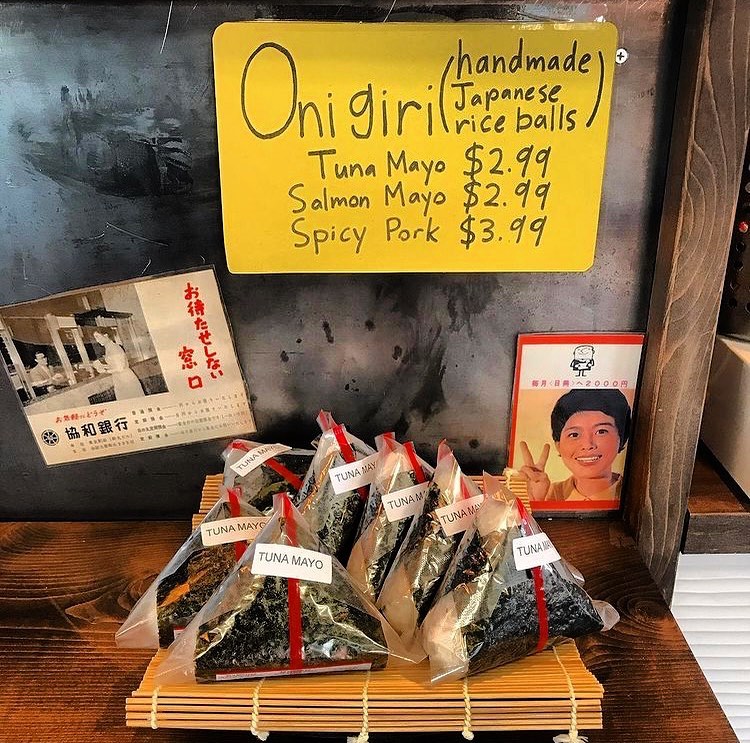 Onigiri (handmade
Japanese
rice balls)
Tuna Mayo $2.99
Salmon Mayo $2.99
Spicy Pork $3.99
お待たせしない
窓口
お気軽にどうぞ
協和銀行
毎月〈日興〉へ2000円
TUNA MAYO
TUNA MAY
TUNA MAYO
TUNA MAY
TUNA MAYO
TUNA MAYO
TUNA MA